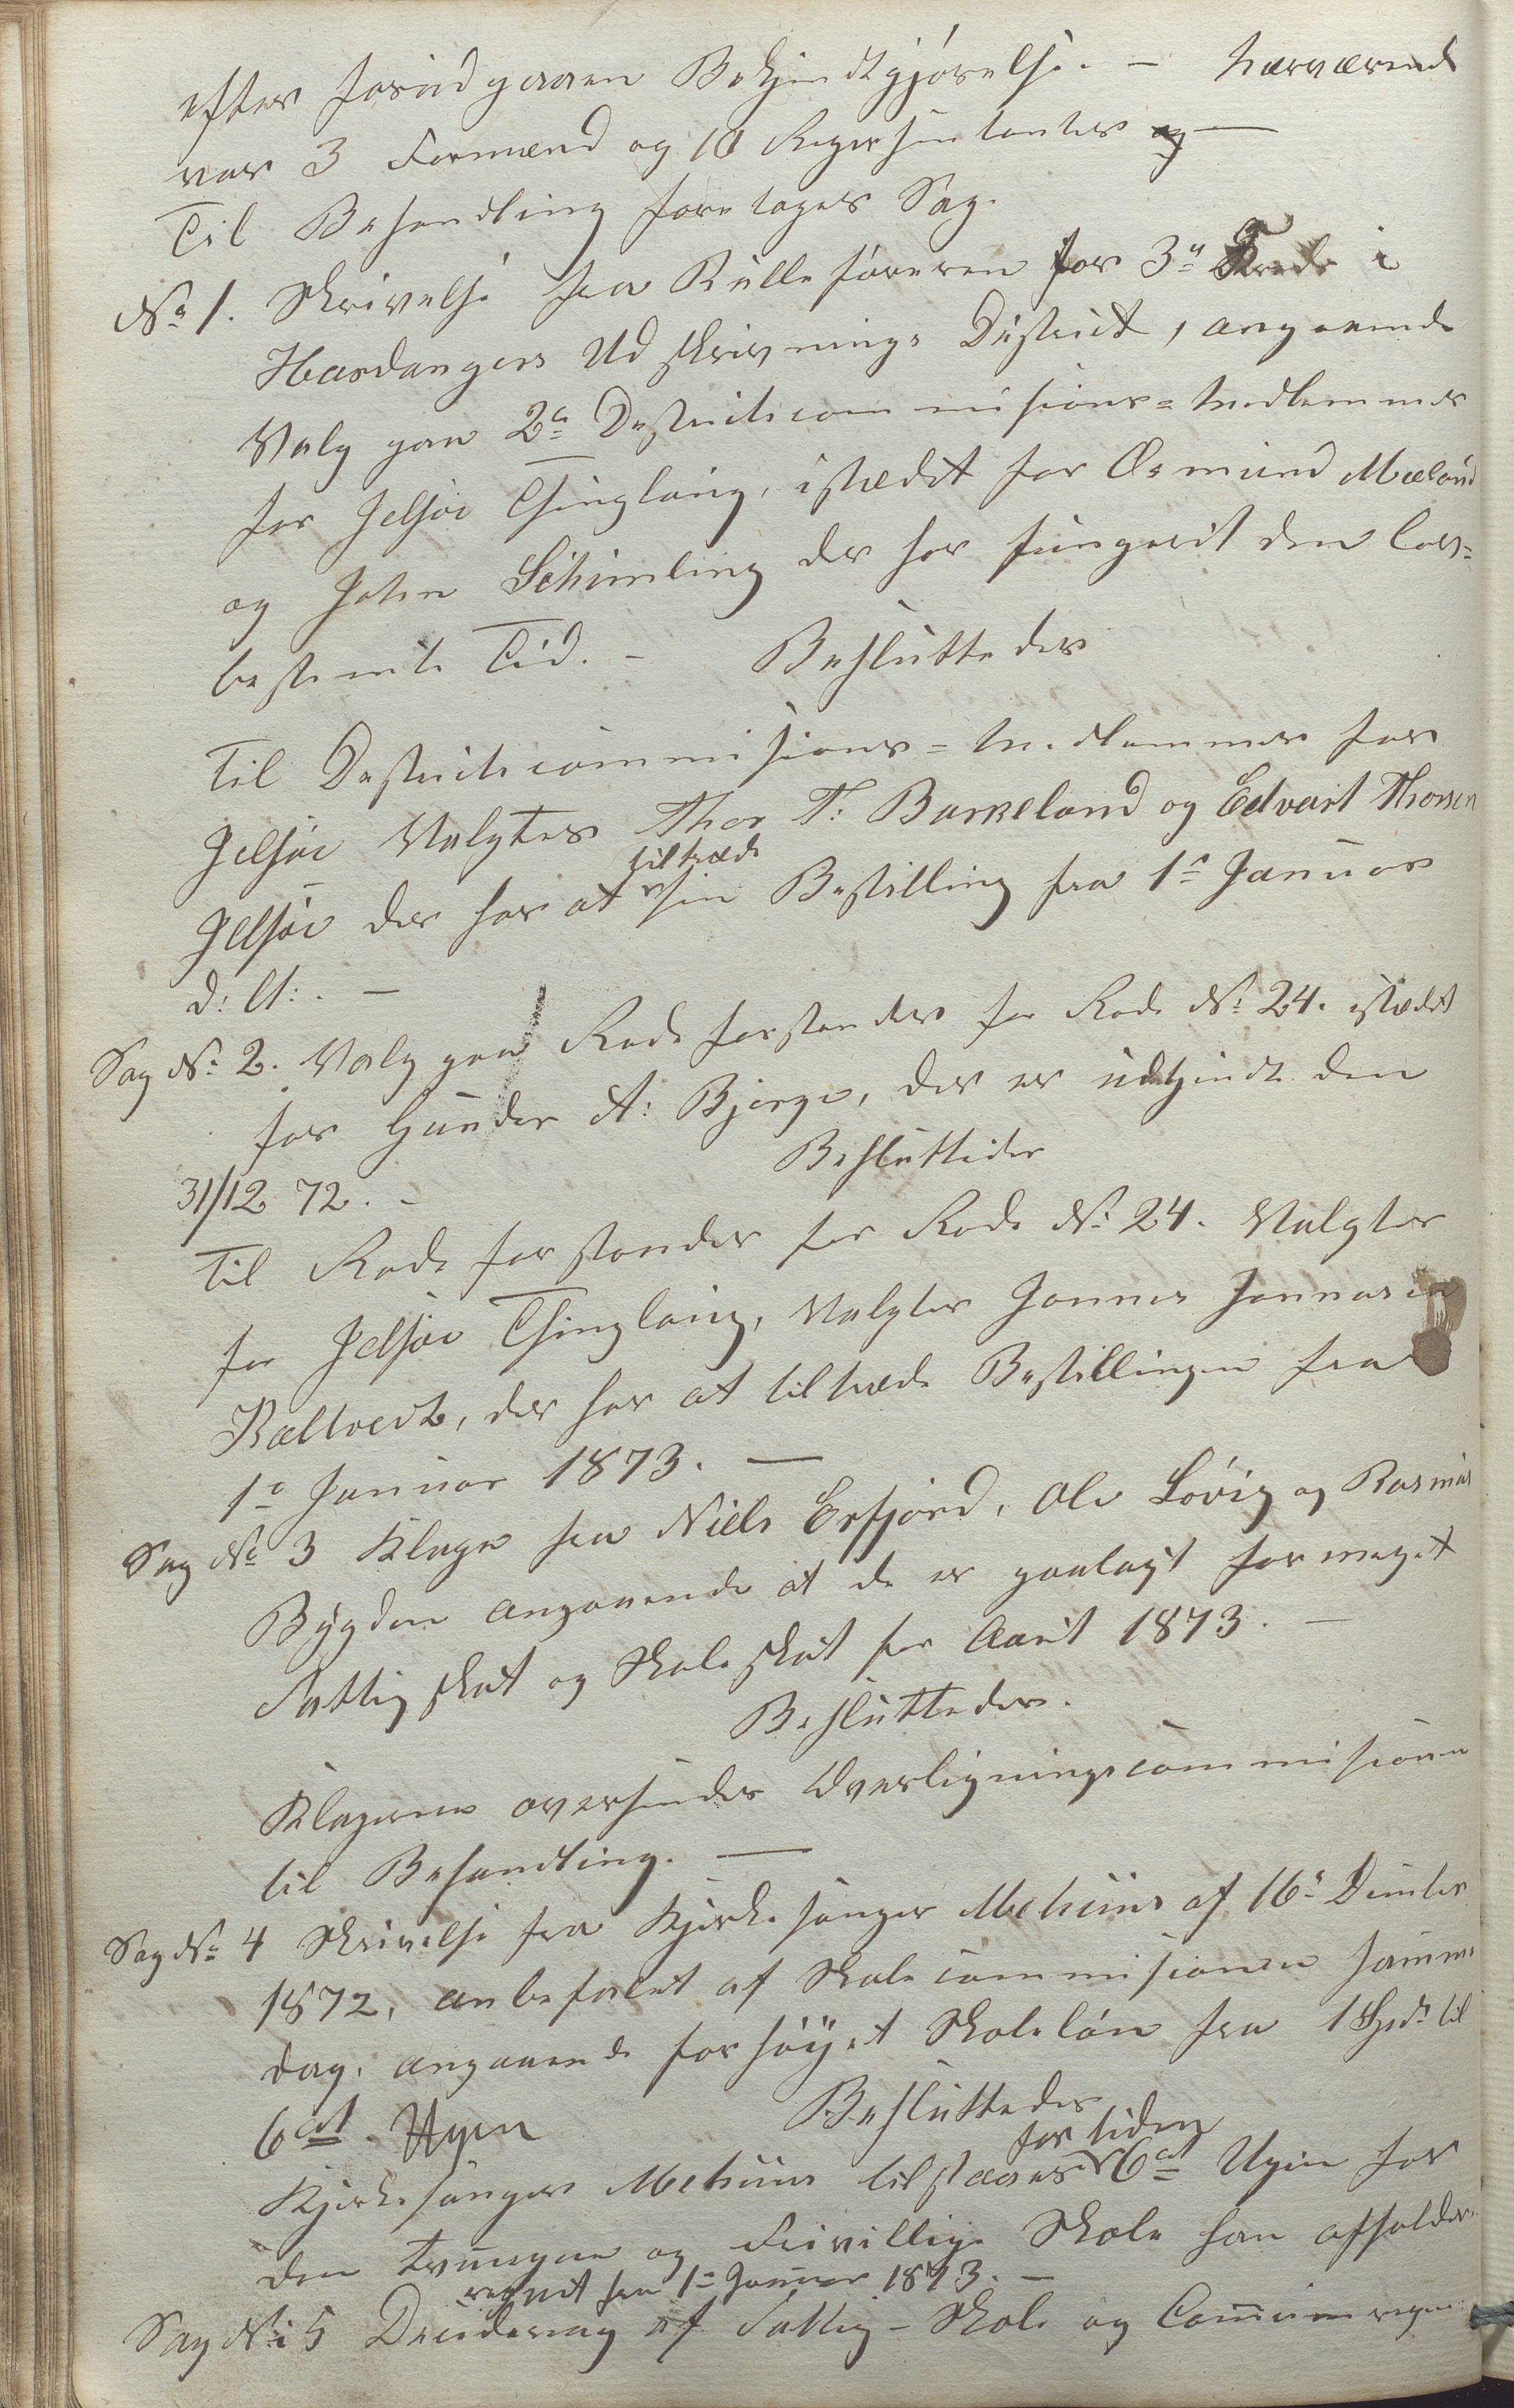 efter forudgaaen Bekjendtgjørelse. – Nærværende
var 3 Formænd og 10 Represintanter og —
Til Behandling foretages Sag.
No 1. Skrivelse fra Rulleføreren for 3die Kreds i
Hardangers Udskrivnings District, angaaende
Valg paa 2de Destrictscommisions=Medlemmer
for Jelsøe Thinglaug, istedet for Osmund Mæland
og John Schimling der har fungerit den lov=
bestemte Tid. – Besluttedes
Til Destrictscommisions=Medlemmer for
Jelsøe Valgtes Thor T: Barkeland og Edvart Thorsen
tiltræde
Jelsøe der har at sin Bestilling fra 1te Januar
d: A:. –
Sag No 2. Valg paa Rodeforstander for Rode No 24. istedet
for Gunder A: Bjerge, der er udtjendt den
31/12 72. – Besluttedes
Til Rodeforstander for Rode No 24. Valgtes
for Jelsøe Thinglaug, Valgtes Jonnes Jonnasen
Bæltvedt, der har at tiltræde Bestillingen fra
1te Januar 1873. —
Sag No 3 Klage fra Niels Erfjord, Ole Løvig og Rasmus
Bygden angaaende at de er paalagt formeget
Fattigskat og Skoleskat for Aarit 1873. —
Besluttedes.
Klagerne oversendes Overligningscommisionen
til Behandling. —
Sag No 4 Skrivelse fra Kjerkesanger Mehuus af 16de Decmber
1872, anbefalet af Skolecommisionen samme
dag, angaaende forhøyet Skoleløn fra 1 Spd. til
6 ort. Ugen Besluttedes
for tiden
Kjerkesanger Mehuus tilstaaes 6 ort Ugen for
den tvungne og Frivillige Skole han afholder
regnet fra 1te Januar 1873. –
Sag No 5 Deciderring af Fattig- Skole og